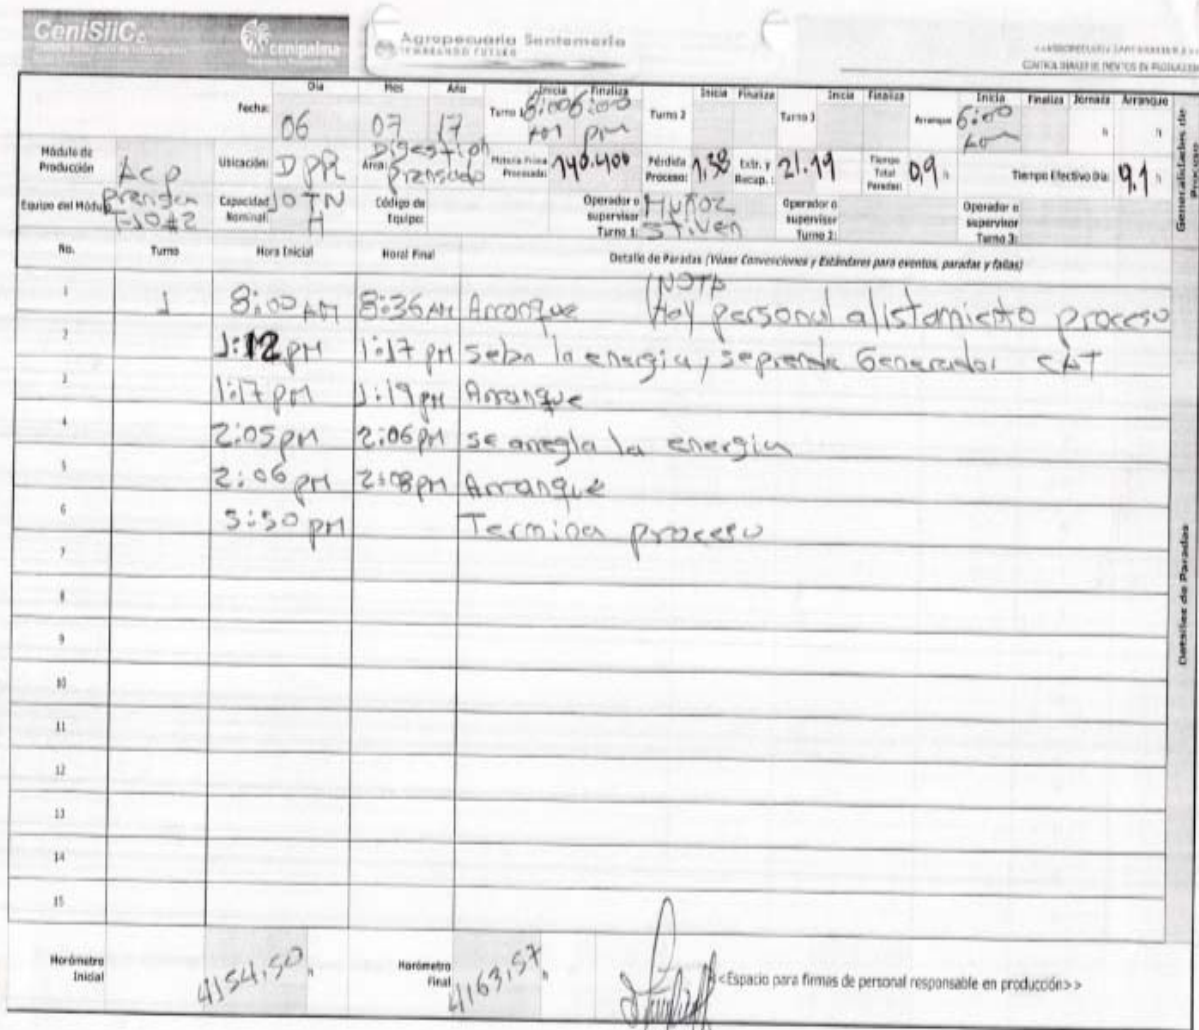 CeniSiiC
cenipalma
Agropecuaria Santamaria
SEMBRANDO FUTURO
Día Mes Año Inicia Finaliza Inicia Finaliza Inicia Finaliza Inicia Finaliza Jornada Arranque
Fecha: 06 07 17 Turno 1 8:00 am 6:00 pm Turno 2 Turno 3 Arranque 6:00 am
Módulo de Producción Acp Ubicación: DPR Área: Digestion Prensado Materia Prima Procesada: 140.400 Pérdida Proceso: 1,38 Extr. y Recup.: 21.19 Tiempo Total Paradas: 0,9 h Tiempo Efectivo Día: 9.1 h
Equipo del Módulo Prensa T-10#2 Capacidad Nominal: 10 TN H Código de Equipo: Operador o supervisor Turno 1: Muñoz Stiven Operador o supervisor Turno 2: Operador o supervisor Turno 3:
Generalidades de Proceso
No. Turno Hora Inicial Horal Final Detalle de Paradas (Véase Convenciones y Estándares para eventos, paradas y fallas)
1 1 8:00 AM 8:36 AM Arranque (NOTA Hay personal alistamiento proceso
2 1:12 PM 1:17 PM se ba la energia, se prende Generador CAT
3 1:17 PM 1:19 PM Arranque
4 2:05 PM 2:06 PM se aregla la energia
5 2:06 PM 2:08 PM Arranque
6 5:50 PM Termina proceso
7
8
9
10
11
12
13
14
15
Detalles de Paradas
Horómetro Inicial 4154,50 h Horómetro Final 4163,57 h <Espacio para firmas de personal responsable en producción>>